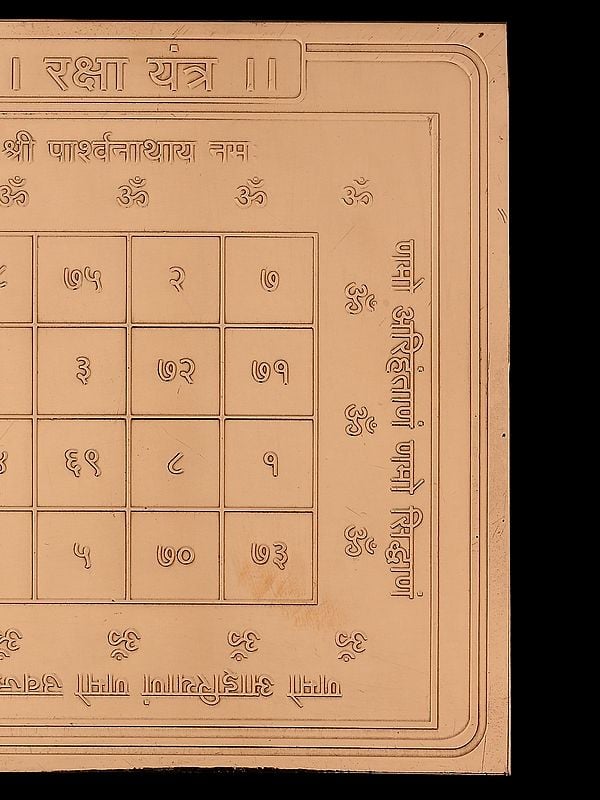 । रक्षा यंत्र ।।
श्री पार्श्वनाथाय नमः
ॐ ॐ ॐ ॐ
७५ २ ७
३ ७२ ७१
६९ ८ १
५ ७० ७३
ॐ
ॐ
ॐ
णमो अरिहंताणं णमो सिद्धाणं
ॐ ॐ ॐ ॐ
णमो आइरियाणं णमो